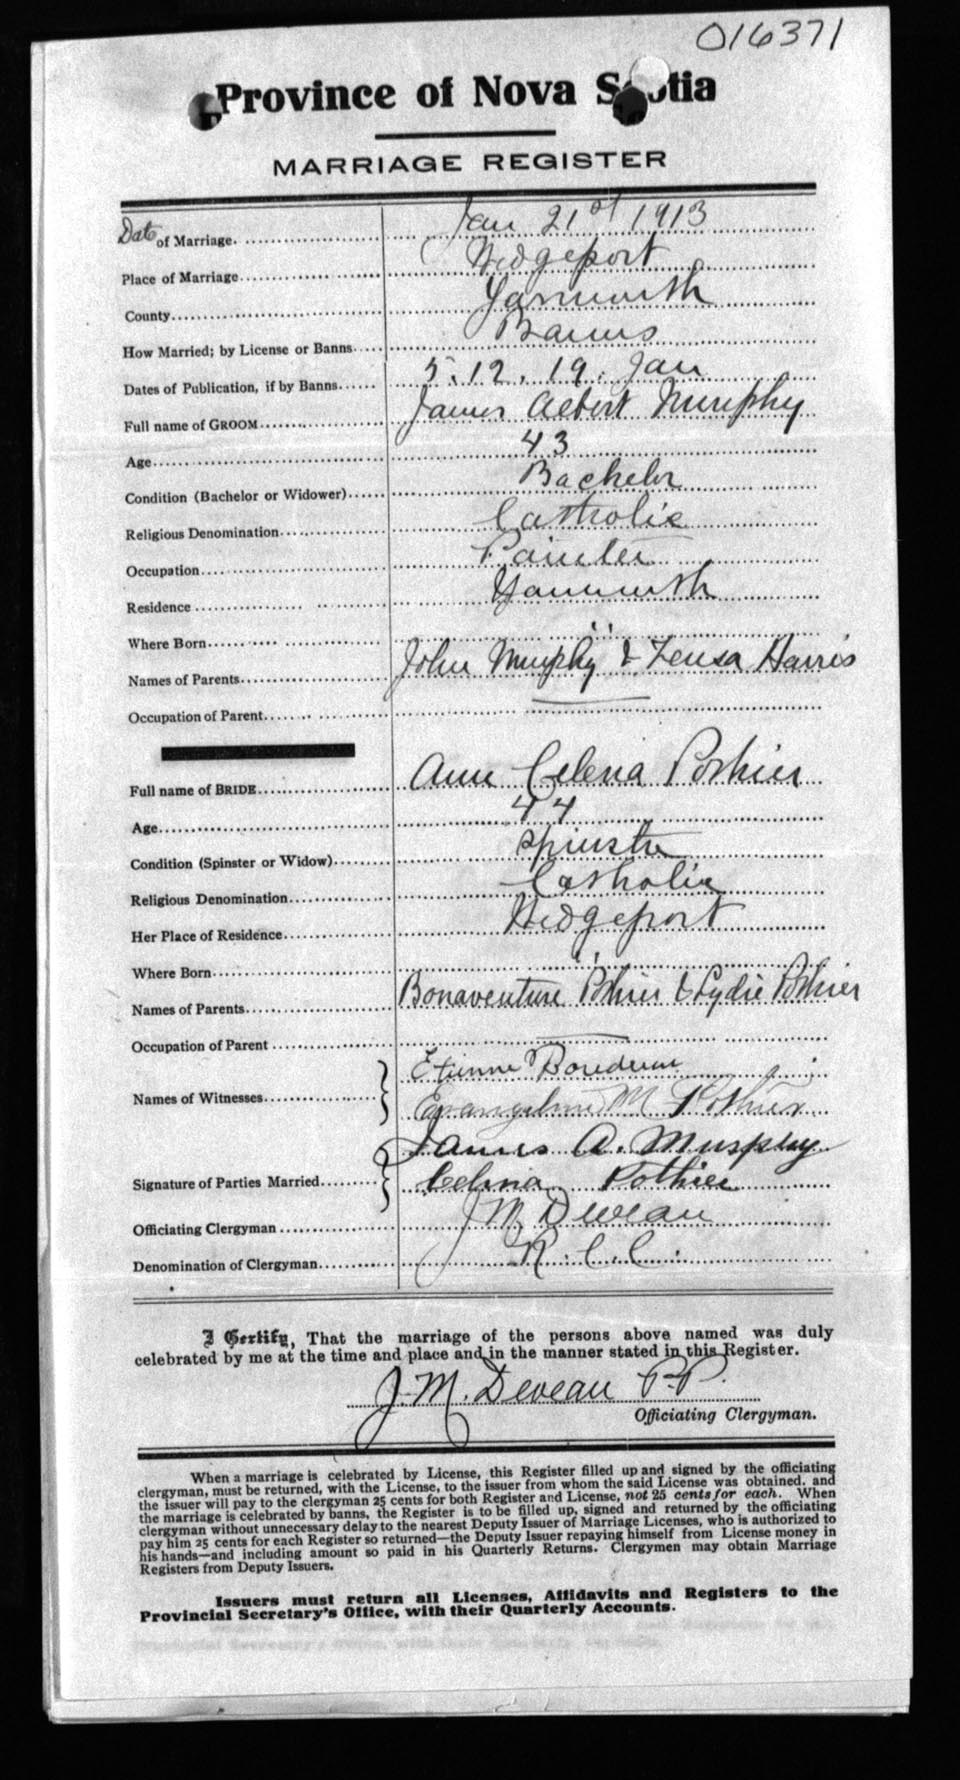 016371
Province of Nova Scotia
MARRIAGE REGISTER
Date of Marriage. Jan 21st 1913
Place of Marriage Wedgeport
County Yarmouth
How Married; by License or Banns Banns
Dates of Publication, if by Banns 5. 12. 19. Jan
Full name of GROOM James Albert Murphy
Age 43
Condition (Bachelor or Widower) Bachelor
Religious Denomination Catholic
Occupation Painter
Residence Yarmouth
Where Born " 
Names of Parents John Murphy & Harris
Occupation of Parent —
Full name of BRIDE Ann Celena Pothier
Age 44
Condition (Spinster or Widow) Spinster
Religious Denomination Catholic
Her Place of Residence Wedgeport
Where Born "
Names of Parents Bonaventure Pothier & Lydie Pothier
Occupation of Parent —
Names of Witnesses Etienne Boudreau
Evangeline M Pothier
Signature of Parties Married James A. Murphy
Celina Pothier
Officiating Clergyman J M Deveau
Denomination of Clergyman R. C. C.
I Certify, That the marriage of the persons above named was duly
celebrated by me at the time and place and in the manner stated in this Register.
J. M. Deveau P.P.
Officiating Clergyman.
When a marriage is celebrated by License, this Register filled up and signed by the officiating
clergyman, must be returned, with the License, to the issuer from whom the said License was obtained, and
the issuer will pay to the clergyman 25 cents for both Register and License, not 25 cents for each. When
the marriage is celebrated by banns, the Register is to be filled up, signed and returned by the officiating
clergyman without unnecessary delay to the nearest Deputy Issuer of Marriage Licenses, who is authorized to
pay him 25 cents for each Register so returned—the Deputy Issuer repaying himself from License money in
his hands—and including amount so paid in his Quarterly Returns. Clergymen may obtain Marriage
Registers from Deputy Issuers.
Issuers must return all Licenses, Affidavits and Registers to the
Provincial Secretary's Office, with their Quarterly Accounts.